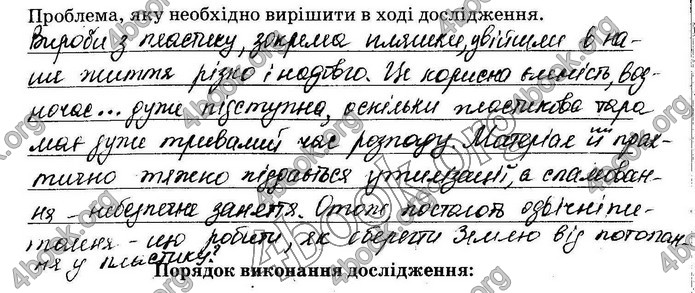 Проблема, яку необхідно вирішити в ході дослідження.
Вироби з пластику, зокрема пляшки, увійшли в на-
ше життя різко і надовго. Це корисна ємність, вод-
ночас... дуже підступна, оскільки пластикова тара
має дуже тривалий час розпаду. Матеріал її прак-
тично тяжко піддається утилізації, а спалюван-
ня - небезпечне заняття. Отож постають одвічні пи-
тання - що робити, як зберегти Землю від потопан-
ня у пластику?
Порядок виконання дослідження:
4book.org